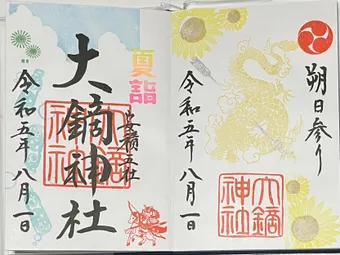 朔日参り
大鏑
神社
令和五年八月一日
夏詣
安積五社
大鏑神社
令和五年八月一日